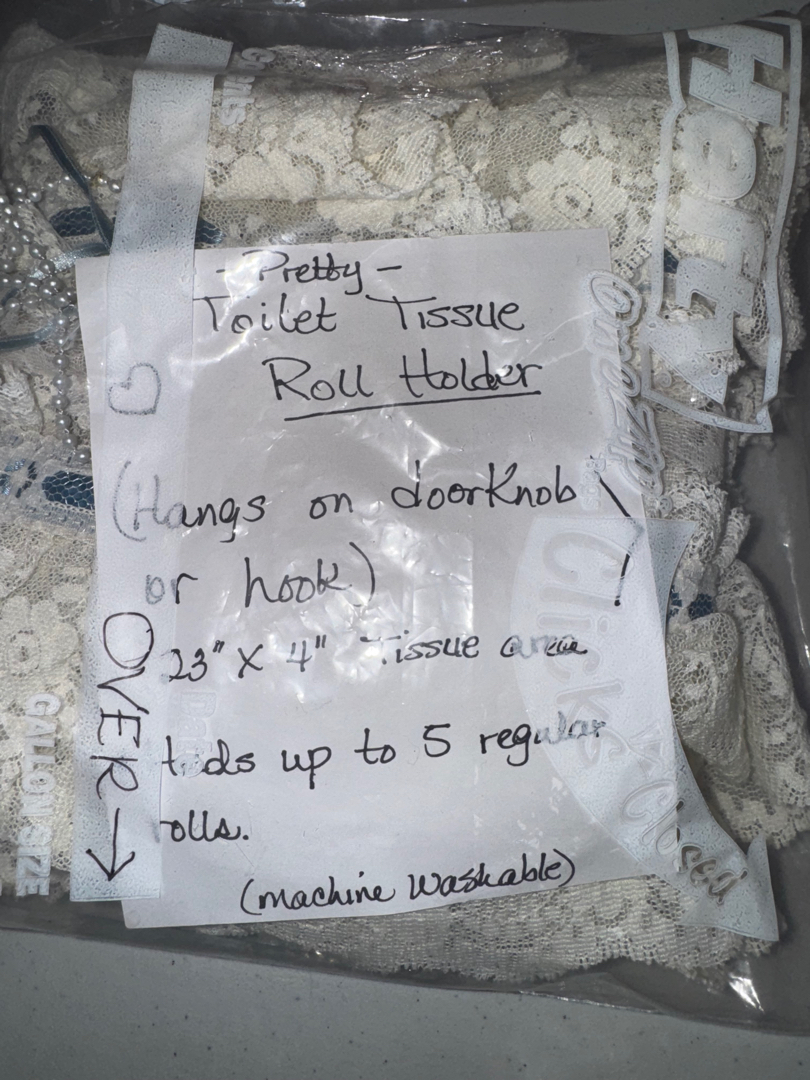 - Pretty -
Toilet Tissue
Roll Holder
(Hangs on doorKnob
or hook)
23" X 4" Tissue area
up to 5 regular
olls.
(machine washable)
OVER →
Hefty
Clicks
Closed
GALLON SIZE